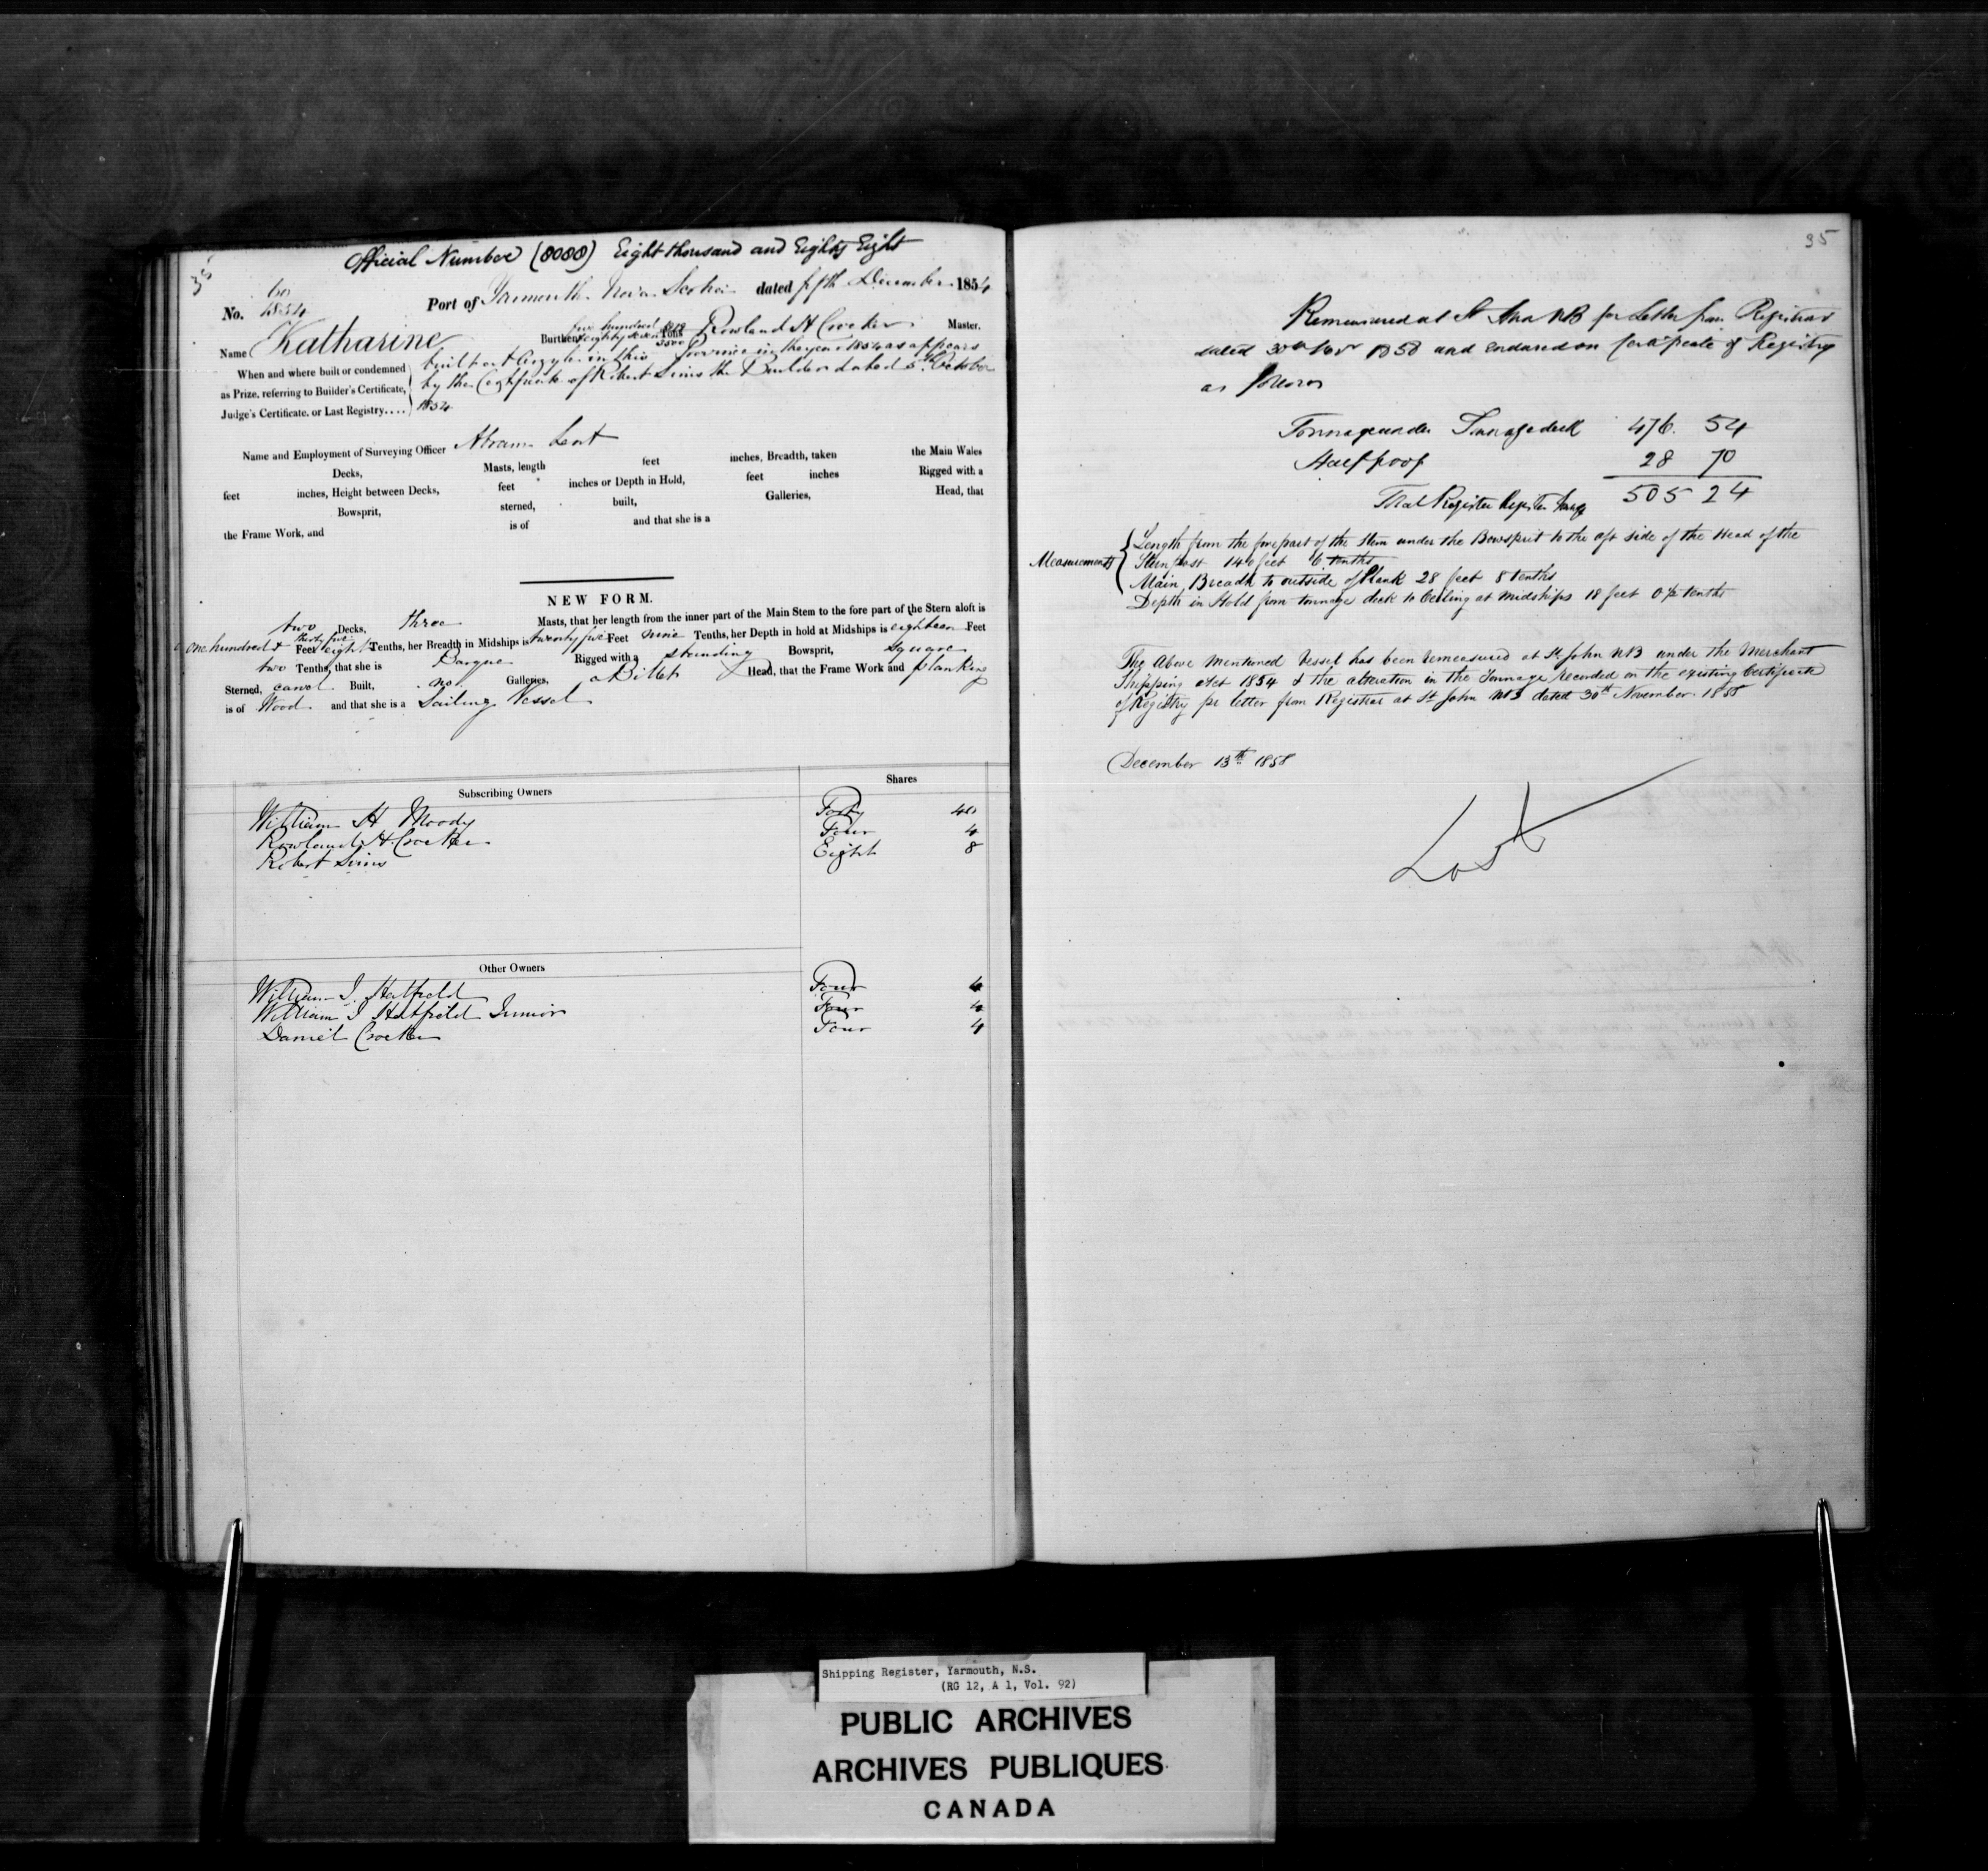 35
Official Number (8088) Eight thousand and Eighty Eight
No. 60 1854 Port of Yarmouth Nova Scotia dated fifth December 1854
Name Katharine Burthen five hundred eighty seven Tons 3500 Rowland H Crocker Master.
When and where built or condemned as Prize, referring to Builder's Certificate, Judge's Certificate, or Last Registry....
built at Argyle in this Province in the year 1854 as appears
by the Certificate of Robert Sims the Builder dated 5th October
1854
Name and Employment of Surveying Officer Abram Lent
Decks, Masts, length feet inches, Breadth, taken the Main Wales
feet inches, Height between Decks, feet inches or Depth in Hold, feet inches Rigged with a
Bowsprit, sterned, built, Galleries, Head, that
the Frame Work, and is of and that she is a
NEW FORM.
two Decks, three Masts, that her length from the inner part of the Main Stem to the fore part of the Stern aloft is
one hundred & thirty five Feet eight Tenths, her Breadth in Midships is twenty five Feet nine Tenths, her Depth in hold at Midships is eighteen Feet
two Tenths, that she is Barque Rigged with a standing Bowsprit, square
Sterned, carvel Built, no Galleries, a Billet Head, that the Frame Work and planking
is of Wood and that she is a Sailing Vessel
Subscribing Owners Shares
William H Moody Forty 40
Rowland H Crocker Four 4
Robert Sims Eight 8
Other Owners
William J. Hatfield Four 4
William J Hatfield Junior Four 4
Daniel Crocker Four 4
35
Remeasured at St John NB per Letter from Registrar
dated 30th Novr 1858 and endorsed on Certificate of Registry
as follows
Tonnage under Tonnage deck 476. 54
Half poop 28 70
Total Register Register Tonnage 505 24
Measurements
Length from the fore part of the Stem under the Bowsprit to the aft side of the Head of the
Stern post 140 feet 6 tenths
Main Breadth to outside of Plank 28 feet 8 tenths
Depth in Hold from tonnage deck to Ceiling at Midships 18 feet 0/2 tenths
The Above Mentioned Vessel has been remeasured at St John NB under the Merchant
Shipping Act 1854 & the alteration in the Tonnage recorded on the existing Certificate
of Registry pr letter from Registrar at St John NB dated 30th November 1858
December 13th 1858
Lost
Shipping Register, Yarmouth, N.S.
(RG 12, A 1, Vol. 92)
PUBLIC ARCHIVES
ARCHIVES PUBLIQUES
CANADA